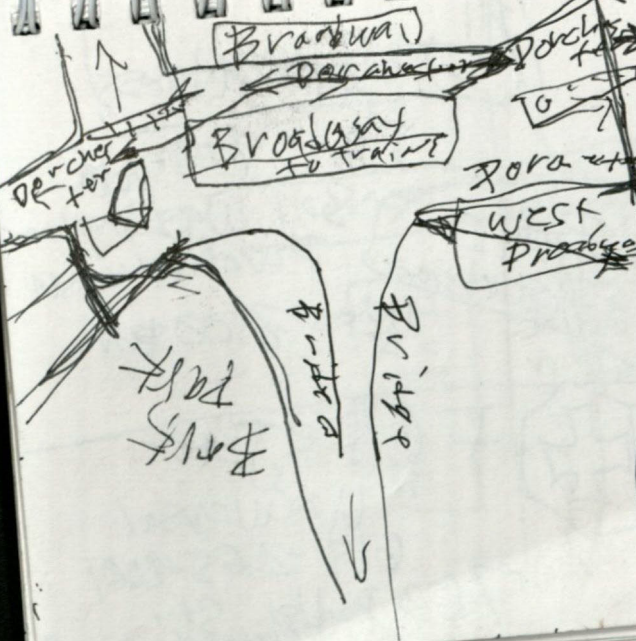 Broadway
Dorchester
Dorches
ter
Broadway
to trains
Dorches
ter
TO
West
Broadway
Bridge
Bridge
Park
Park